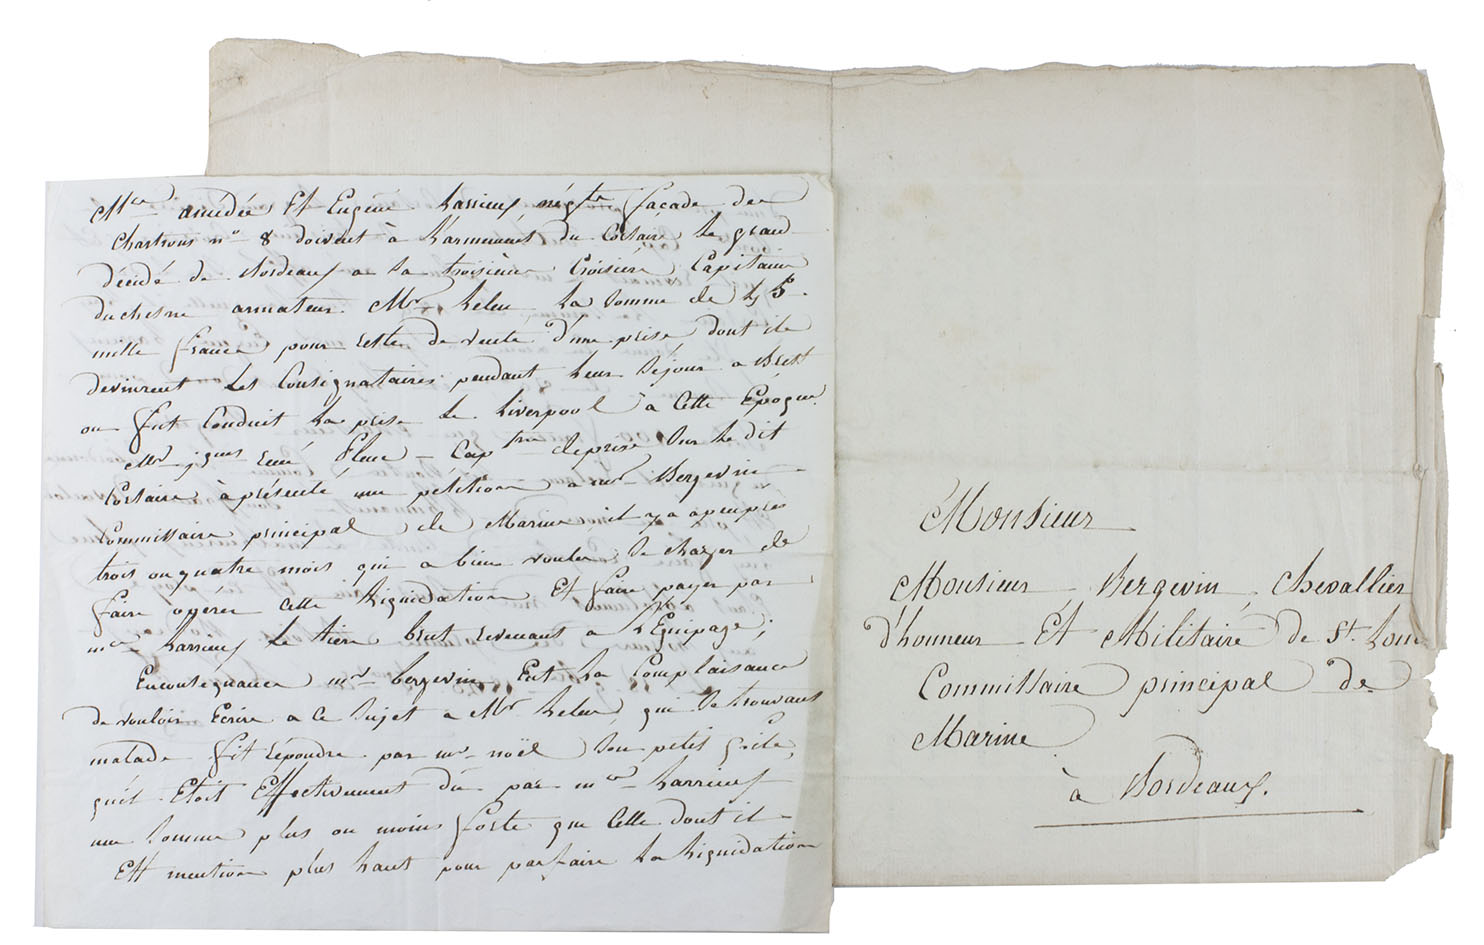 Mrs amédée Et Eugène Larrieux négts façade des
Chartrons n° 8 doivent à L'armement du Corsaire Le grand
décidé de Bordeaux a Sa troisième Croisière Capitaine
duchesne armateur Mr Leleu La Somme de 45
mille francs pour reste de vente d'une prise dont ils
devinrent Les Consignataires pendant Leur Séjour a Brest
ou fut Conduit La prise Le Liverpool a Cette Époque
Mr jques René capne de prise Sur Le dit
Corsaire à présenté une pétition a mr Bergevin
Commissaire principal de Marine il y a apeuprès
trois ou quatre mois qui a bien voulu Se charger de
faire opérer Cette Liquidation Et faire payer par
mrs Larrieux Le tiers brut revenant a L'Équipage;
Enconséquance mr bergevin Eut La Complaisance
de vouloir Ecrire a Ce Sujet a Mr Leleu, qui Se trouvant
malade fit répondre par mr noël Son petit fils,
qu'il Etoit Effectivement dû par mrs Larrieux
une Somme plus ou moins forte que Celle dont il
Est mention plus haut pour parfaire La Liquidation
Monsieur
Monsieur Bergevin, Chevallier
d'honneur Et Militaire de St. Louis
Commissaire principal de
Marine
à Bordeaux.